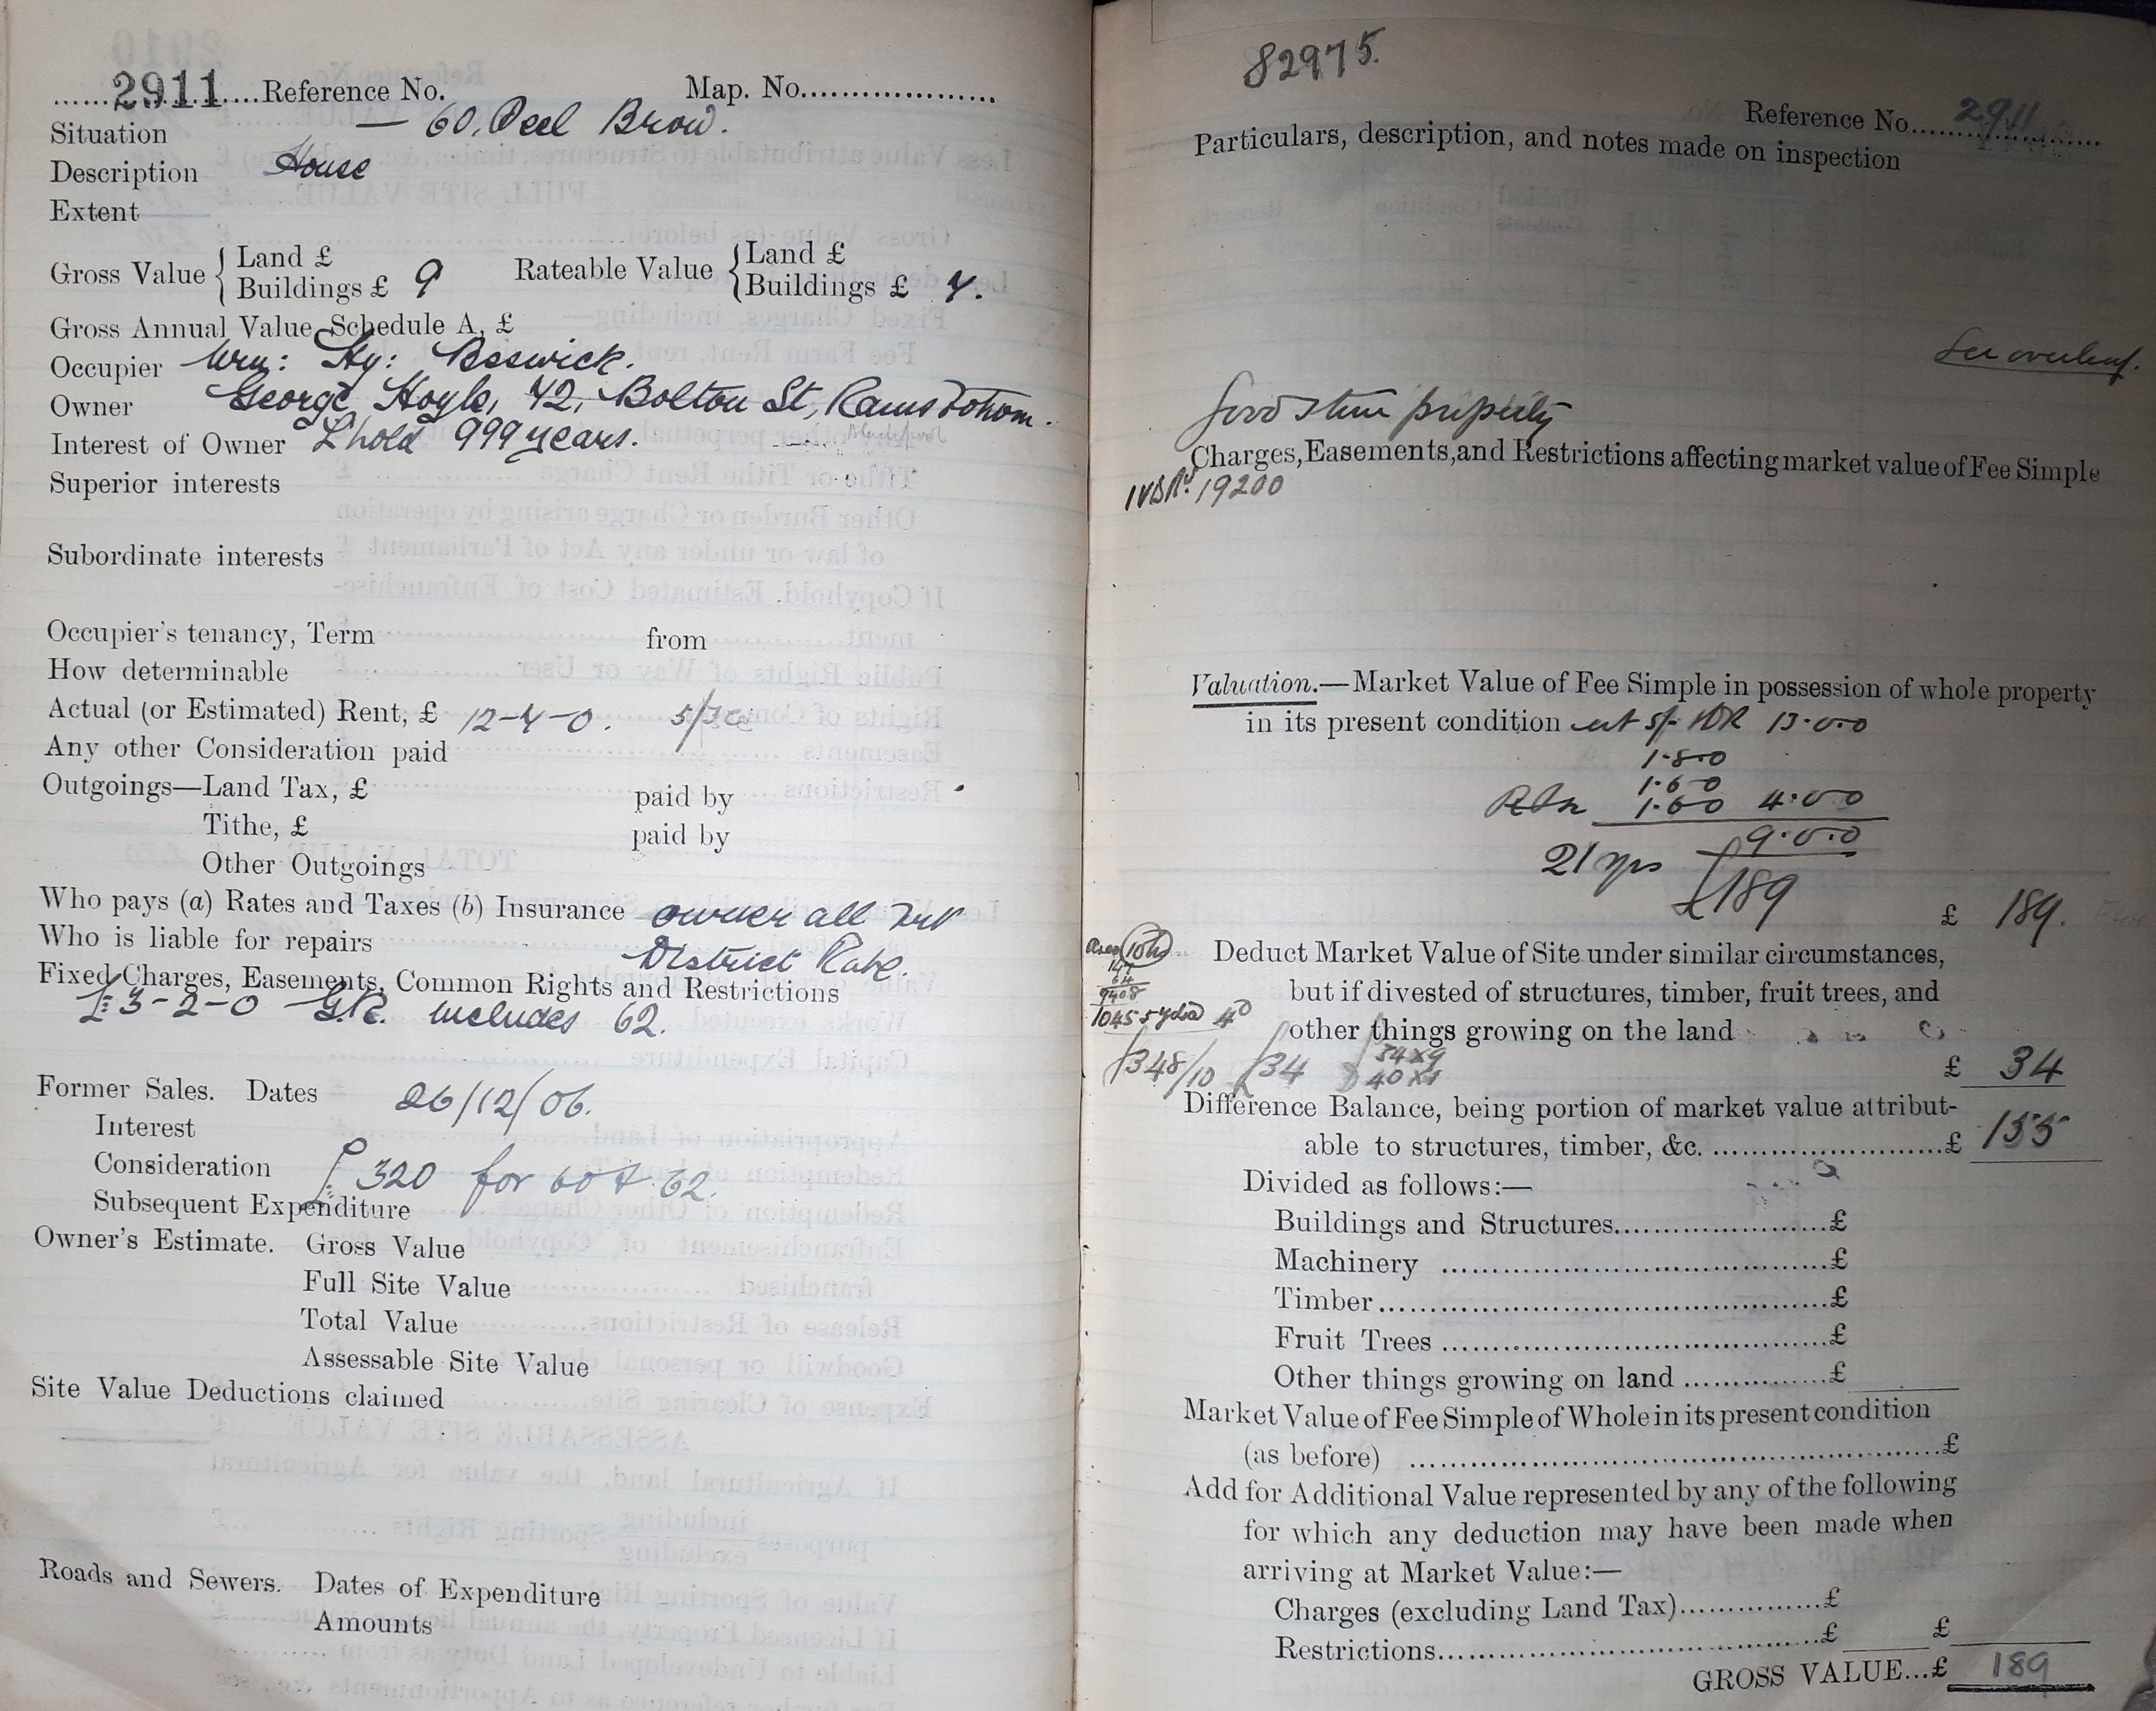 2911 Reference No. Map. No.
Situation — 60, Peel Brow.
Description House
Extent
Gross Value { Land £
Buildings £ 9
Rateable Value { Land £
Buildings £ 7.
Gross Annual Value, Schedule A, £
Occupier Wm: Hy: Beswick.
Owner George Hoyle, 42, Bolton St, Ramsbottom.
Interest of Owner L'hold 999 years.
Superior interests
Subordinate interests
Occupier's tenancy, Term from
How determinable
Actual (or Estimated) Rent, £ 12-4-0. 5/
Any other Consideration paid
Outgoings—Land Tax, £ paid by
Tithe, £ paid by
Other Outgoings
Who pays (a) Rates and Taxes (b) Insurance owner all but
Who is liable for repairs District Rate.
Fixed Charges, Easements, Common Rights and Restrictions
£3-2-0 G.R. includes 62.
Former Sales. Dates 26/12/06.
Interest
Consideration £320 for 60 & 62.
Subsequent Expenditure
Owner's Estimate. Gross Value
Full Site Value
Total Value
Assessable Site Value
Site Value Deductions claimed
Roads and Sewers. Dates of Expenditure
Amounts
82975.
Reference No. 2911
Particulars, description, and notes made on inspection
See overleaf.
Good stone property
Charges, Easements, and Restrictions affecting market value of Fee Simple
19200
Valuation.—Market Value of Fee Simple in possession of whole property
in its present condition at 5/- 13.0.0
1.8.0
1.6.0
1.6.0 4.0.0
9.0.0
21 yrs
£189
£ 189.
Area
147
64
9408
1045.5 yds @ 4D
Deduct Market Value of Site under similar circumstances,
but if divested of structures, timber, fruit trees, and
other things growing on the land
£348/10 £34 34 x 9
40 x 1
£ 34
Difference Balance, being portion of market value attribut-
able to structures, timber, &c. £ 155
Divided as follows:—
Buildings and Structures £
Machinery £
Timber £
Fruit Trees £
Other things growing on land £
Market Value of Fee Simple of Whole in its present condition
(as before) £
Add for Additional Value represented by any of the following
for which any deduction may have been made when
arriving at Market Value:—
Charges (excluding Land Tax) £
Restrictions £ £
GROSS VALUE...£ 189